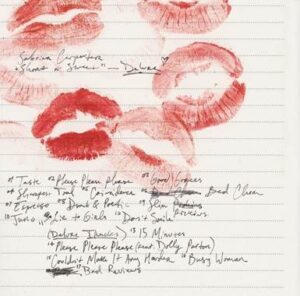 Sabrina Carpenter
"Short n' Sweet" — Deluxe
01 Taste 02 Please Please Please 03 Good Graces
04 Sharpest Tool 05 Coincidence 06 Bed Chem
07 Espresso 08 Dumb & Poetic 09 Slim Pickins
10 Juno 11 Lie to Girls 12 Don't Smile
(Deluxe Tracks) 13 15 Minutes
14 Please Please Please (feat. Dolly Parton)
15 Couldn't Make It Any Harder 16 Busy Woman
17 Bad Reviews